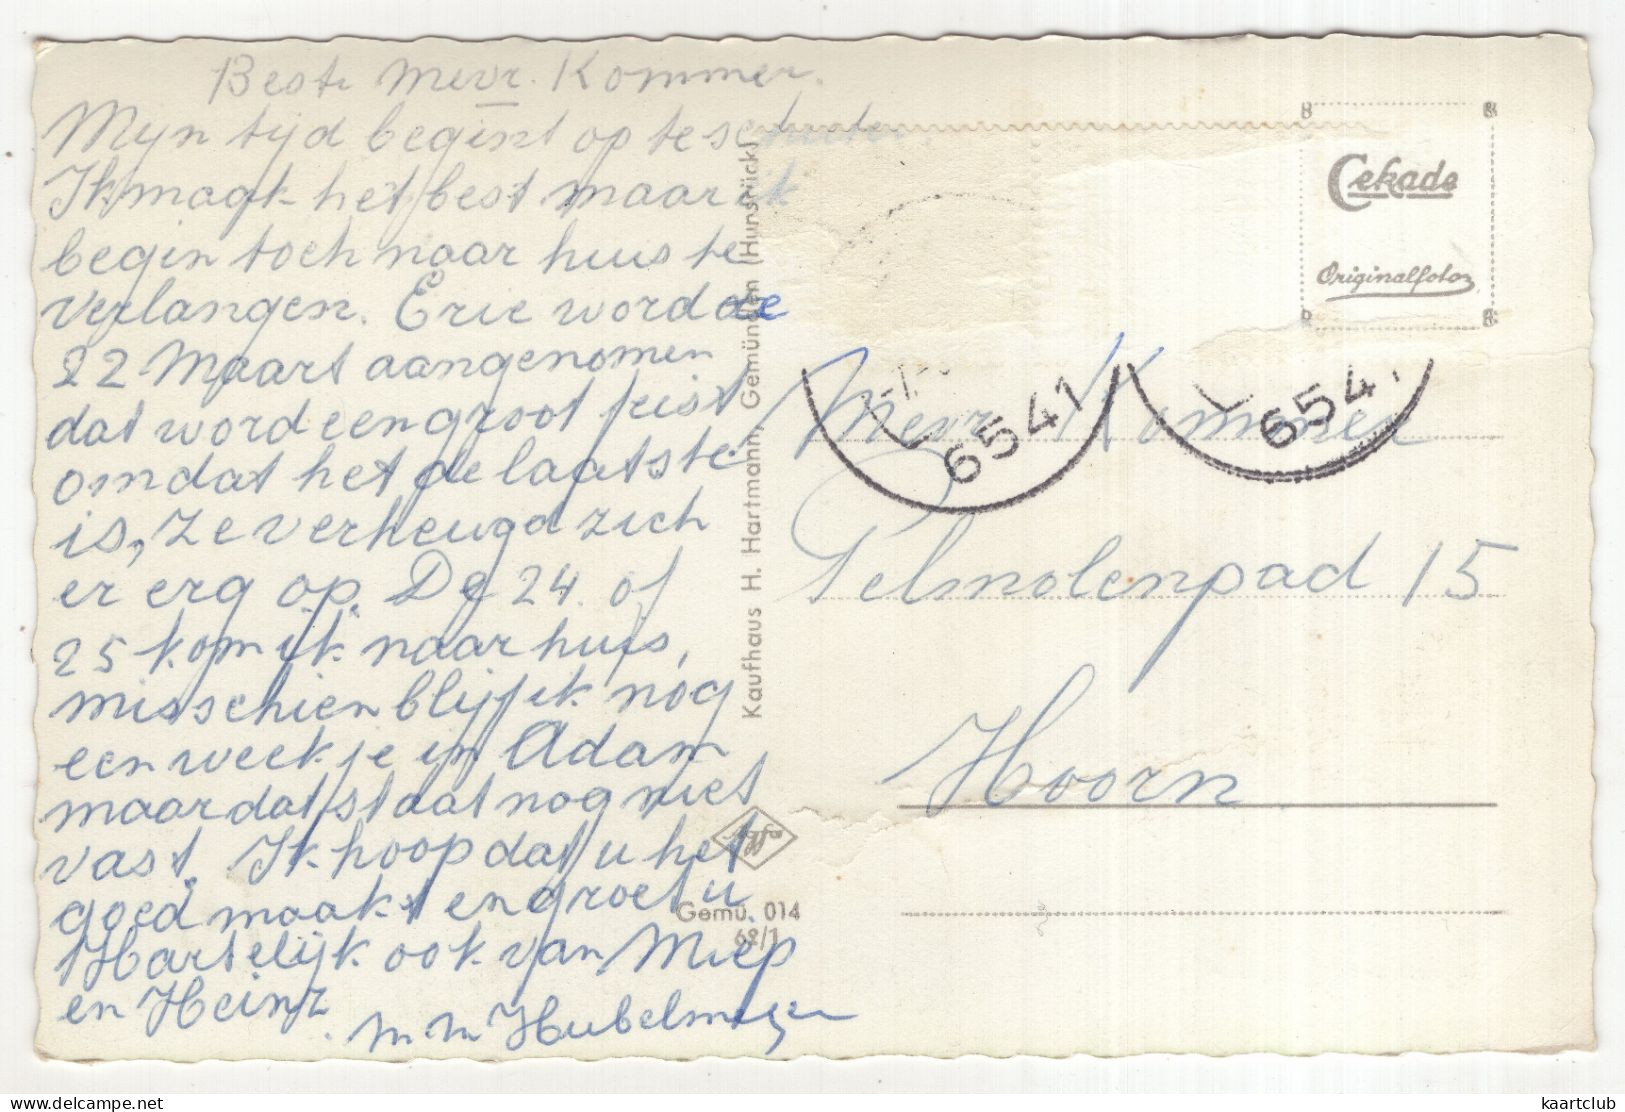 Beste Mevr. Kommer.
Myn tijd begint op te schieten.
Ik maak het best maar ik
begin toch naar huis te
verlangen. Erie word de
22 Maart aangenomen
dat word een groot feist
omdat het de laatste
is, Ze verheugd zich
er erg op. De 24 of
25 kom ik naar huis,
misschien blijf ik nog
een weekje in Adam
maar dat staat nog niet
vast. Ik hoop dat u het
goed maakt en groet u
Hartelijk ook van Miep
en Heinz.
Kaufhaus H. Hartmann, Gemünden (Hunsrück)
Agfa
Gemü. 014
62/1
Cekade
Originalfoto
6541
6541
Mevr Kommer
Pelmolenpad 15
Hoorn
kaartclub
delcampe.com